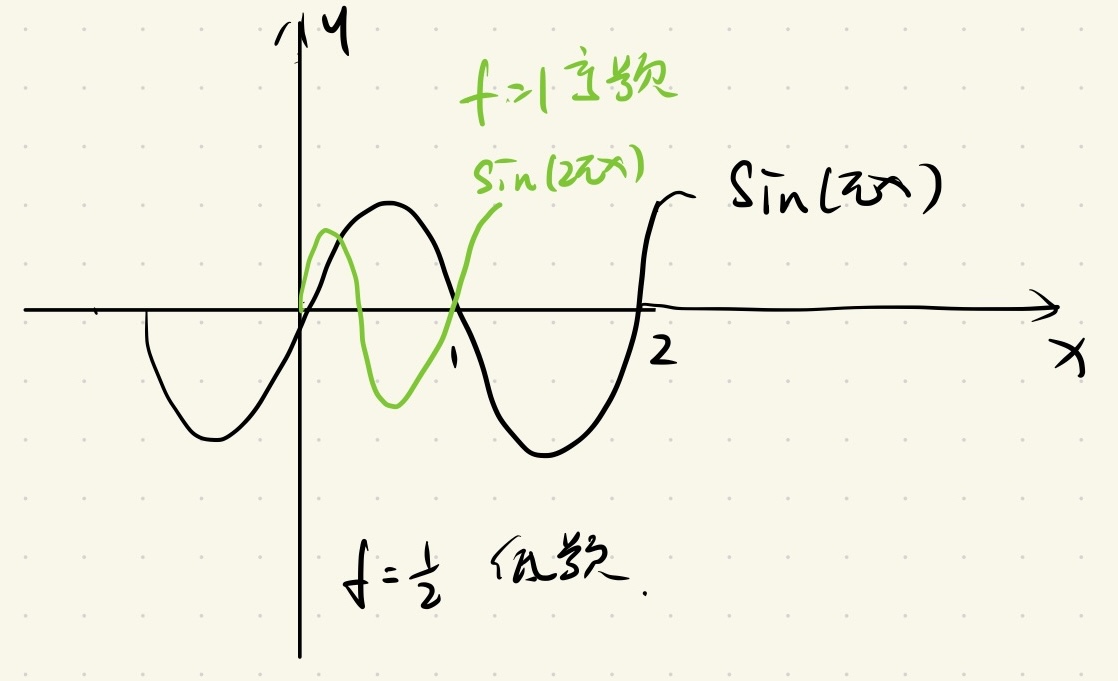 y
f=1 高频
sin(2πx)
sin(πx)
1
2
x
f=1/2 低频.